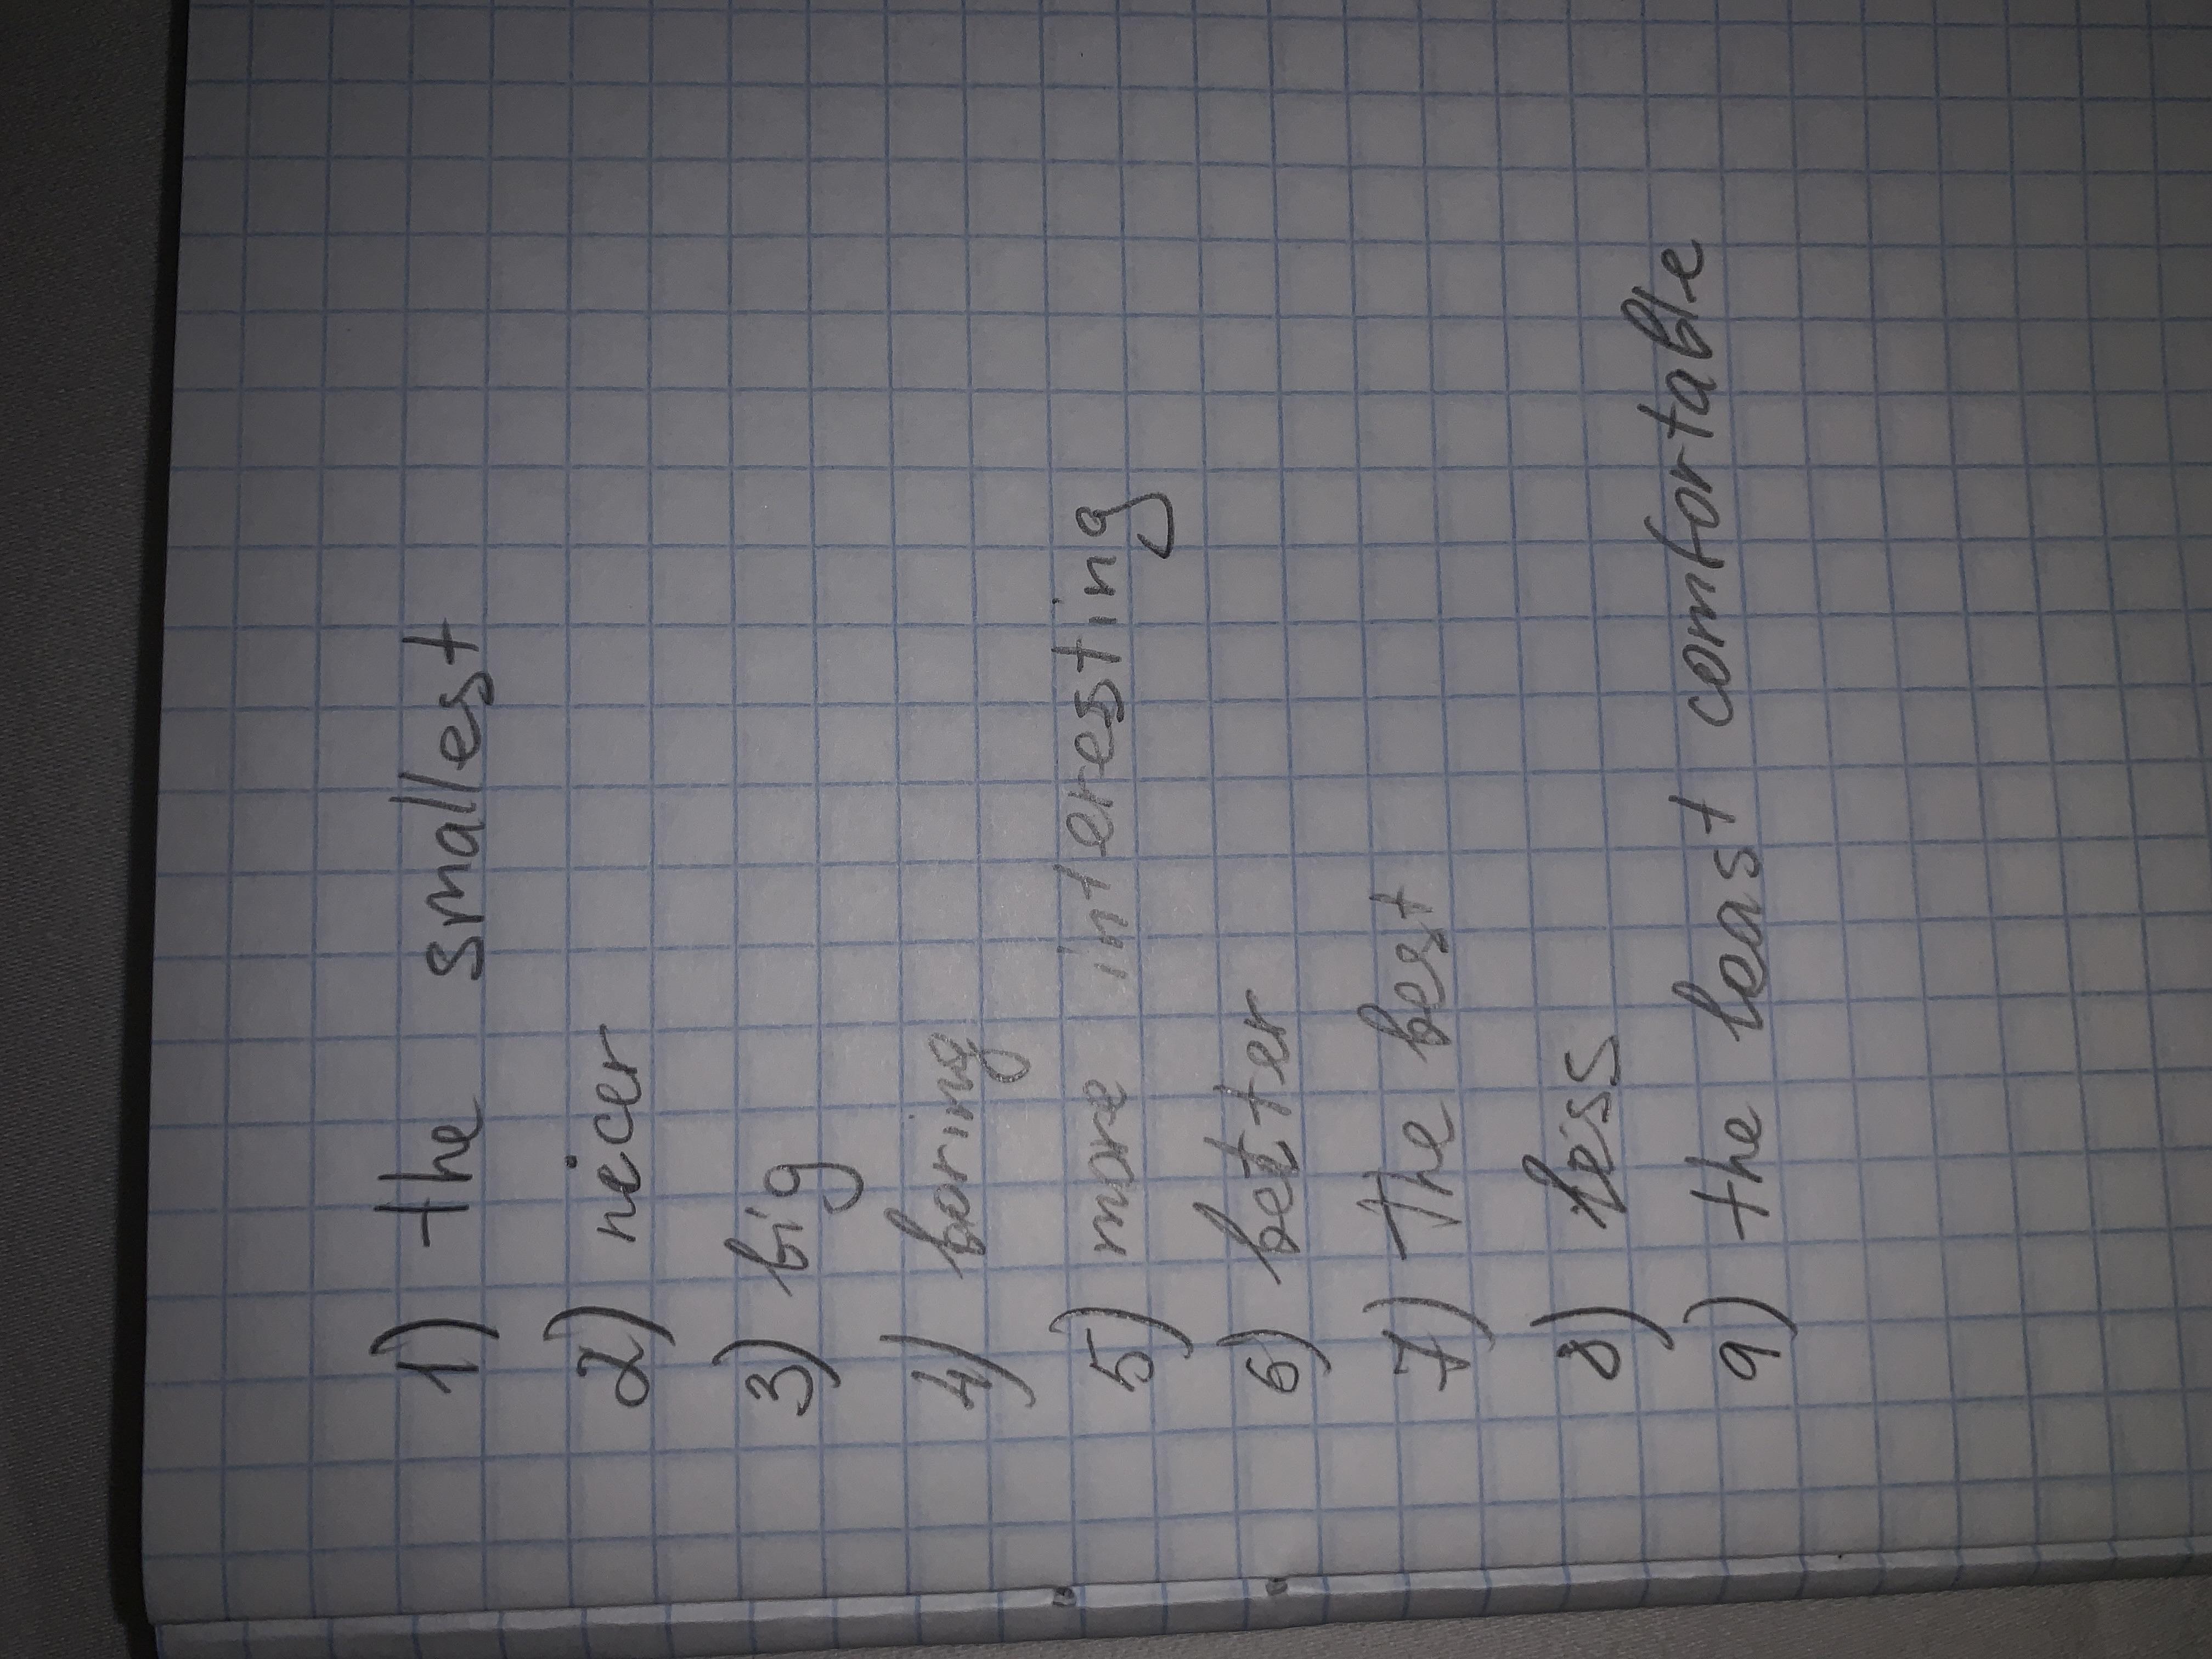 1) the smallest
2) nicer
3) big
4) boring
5) more interesting
6) better
7) the best
8) less
9) the least comfortable